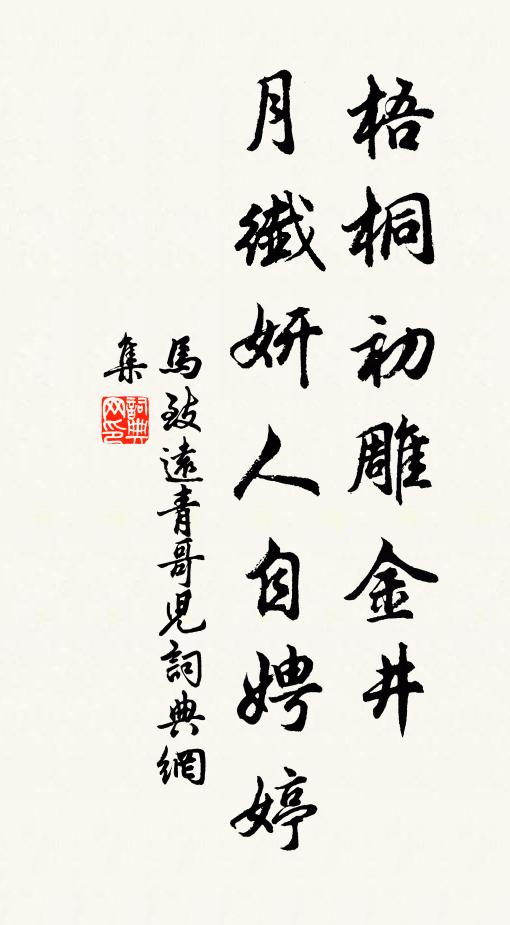 梧桐初雕金井
月纖妍人自娉婷
馬致遠青哥兒詞典網
集
詞典網印